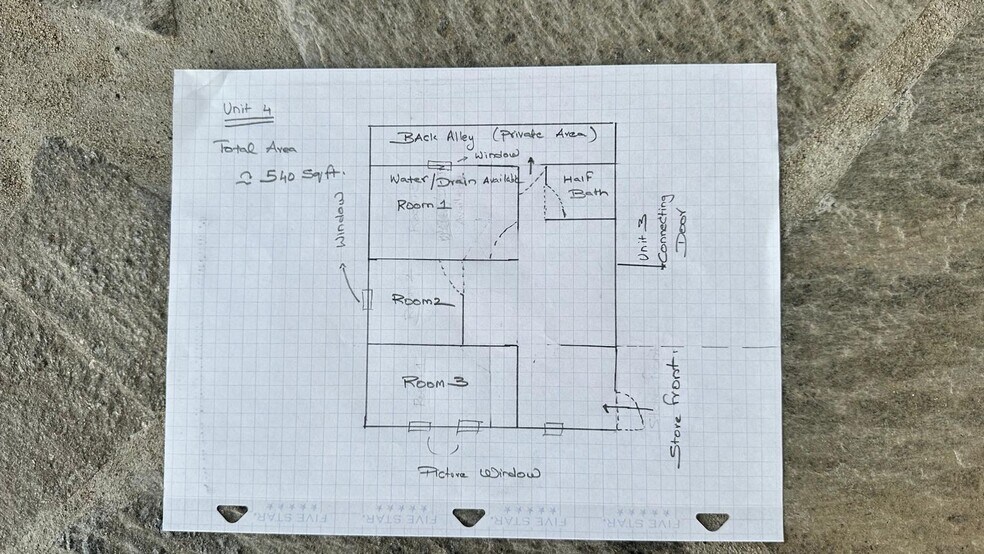 Unit 4
Total Area
≃ 540 Sqft.
BAck Alley (Private Area)
Window
Water/Drain Available
Room 1
Half
Bath
Window
Unit 3
Connecting
Door
Room 2
Room 3
Store front.
Picture Window
FIVE STAR.
FIVE STAR.
FIVE STAR.
FIVE STAR.